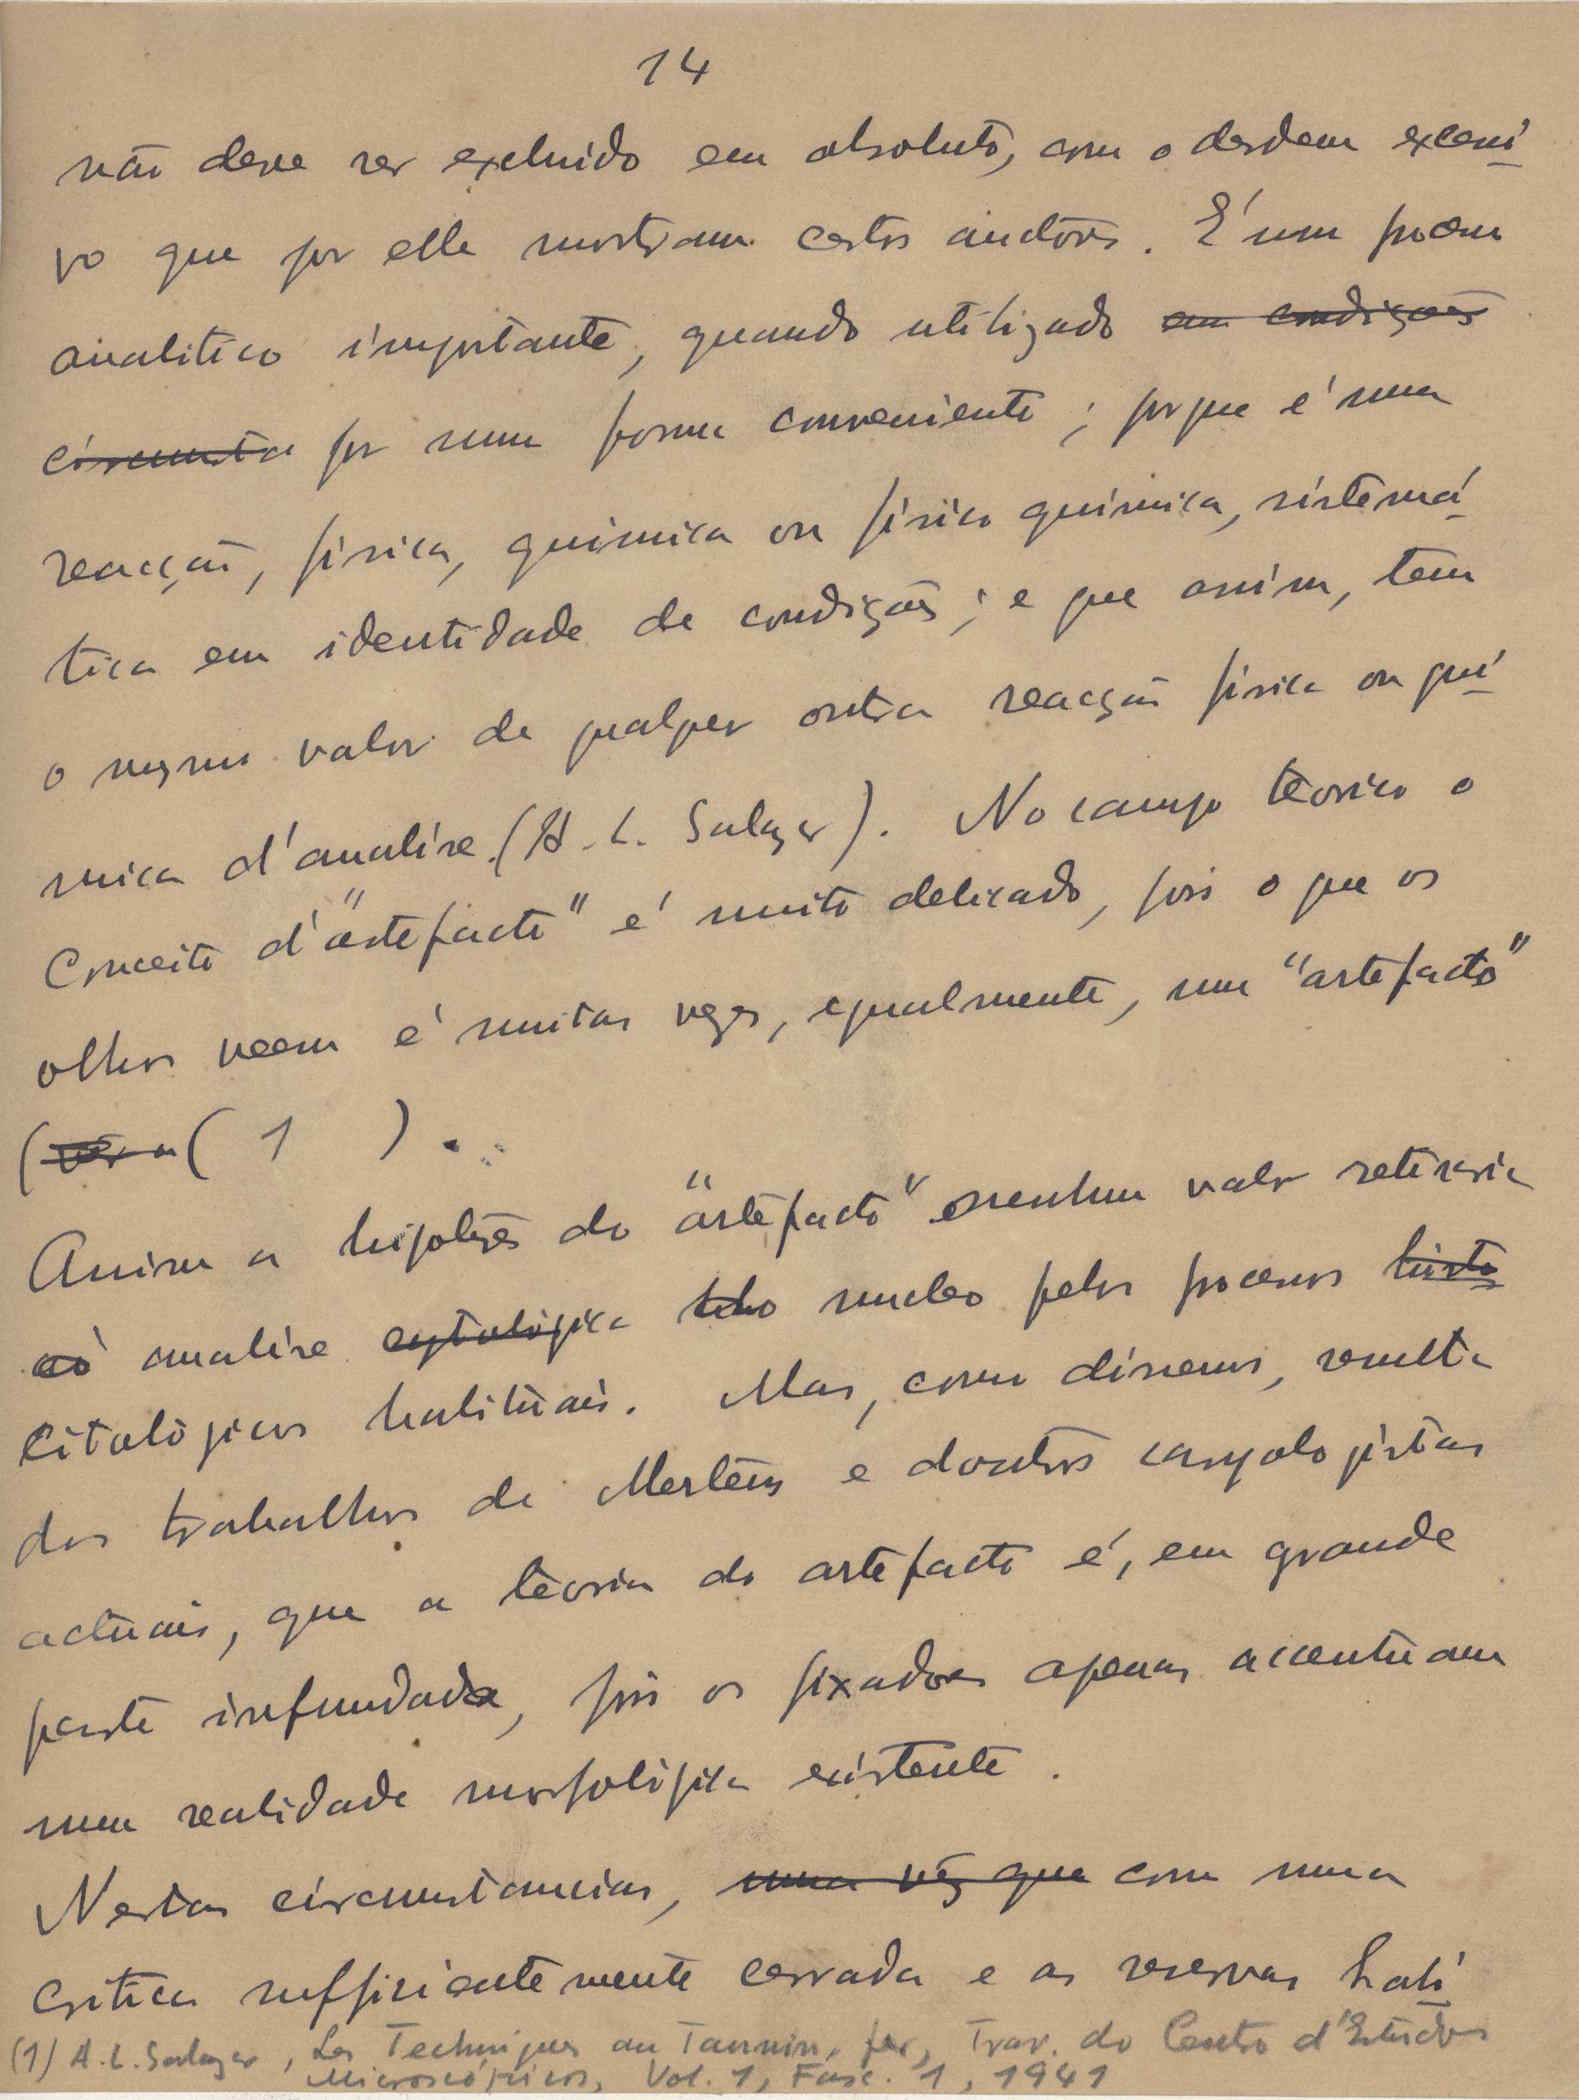 14
não deve ser excluido em absoluto, com o desdem excessi
vo que por elle mostram certos auctores. É um processo
analitico importante, quando utilizado em condições
circumsta por uma forma conveniente; porque é uma
reacção, fisica, quimica ou fisico quimica, sistemá
tica em identidade de condições; e que assim, tem
o mesmo valor de qualquer outra reacção fisica ou quí
mica d'analise. (A. L. Salazar). No campo teorico o
conceito d'"artefacto" é muito delicado, pois o que os
olhos veem é muitas vezes, egualmente, um "artefacto"
(ver a (1).
Assim a hipotese do "artefacto" nenhum valor retiraria
aó analise cytologica do nucleo pelos processos histo
citológicos habituais. Mas, como dissemos, resulta
dos trabalhos de Mertens e doutros caryologistas
actuais, que a teoria do artefacto é, em grande
parte infundada, pois os fixadores apenas accentuam
uma realidade morfológica existente.
Nestas circumstancias, uma vez que com uma
critica sufficientemente cerrada e as reservas habi
(1) A. L. Salazar, Les Techniques au Tannin-fer, Trav. do Centro d'Estudos
Microscópicos, Vol. 1, Fasc. 1, 1941